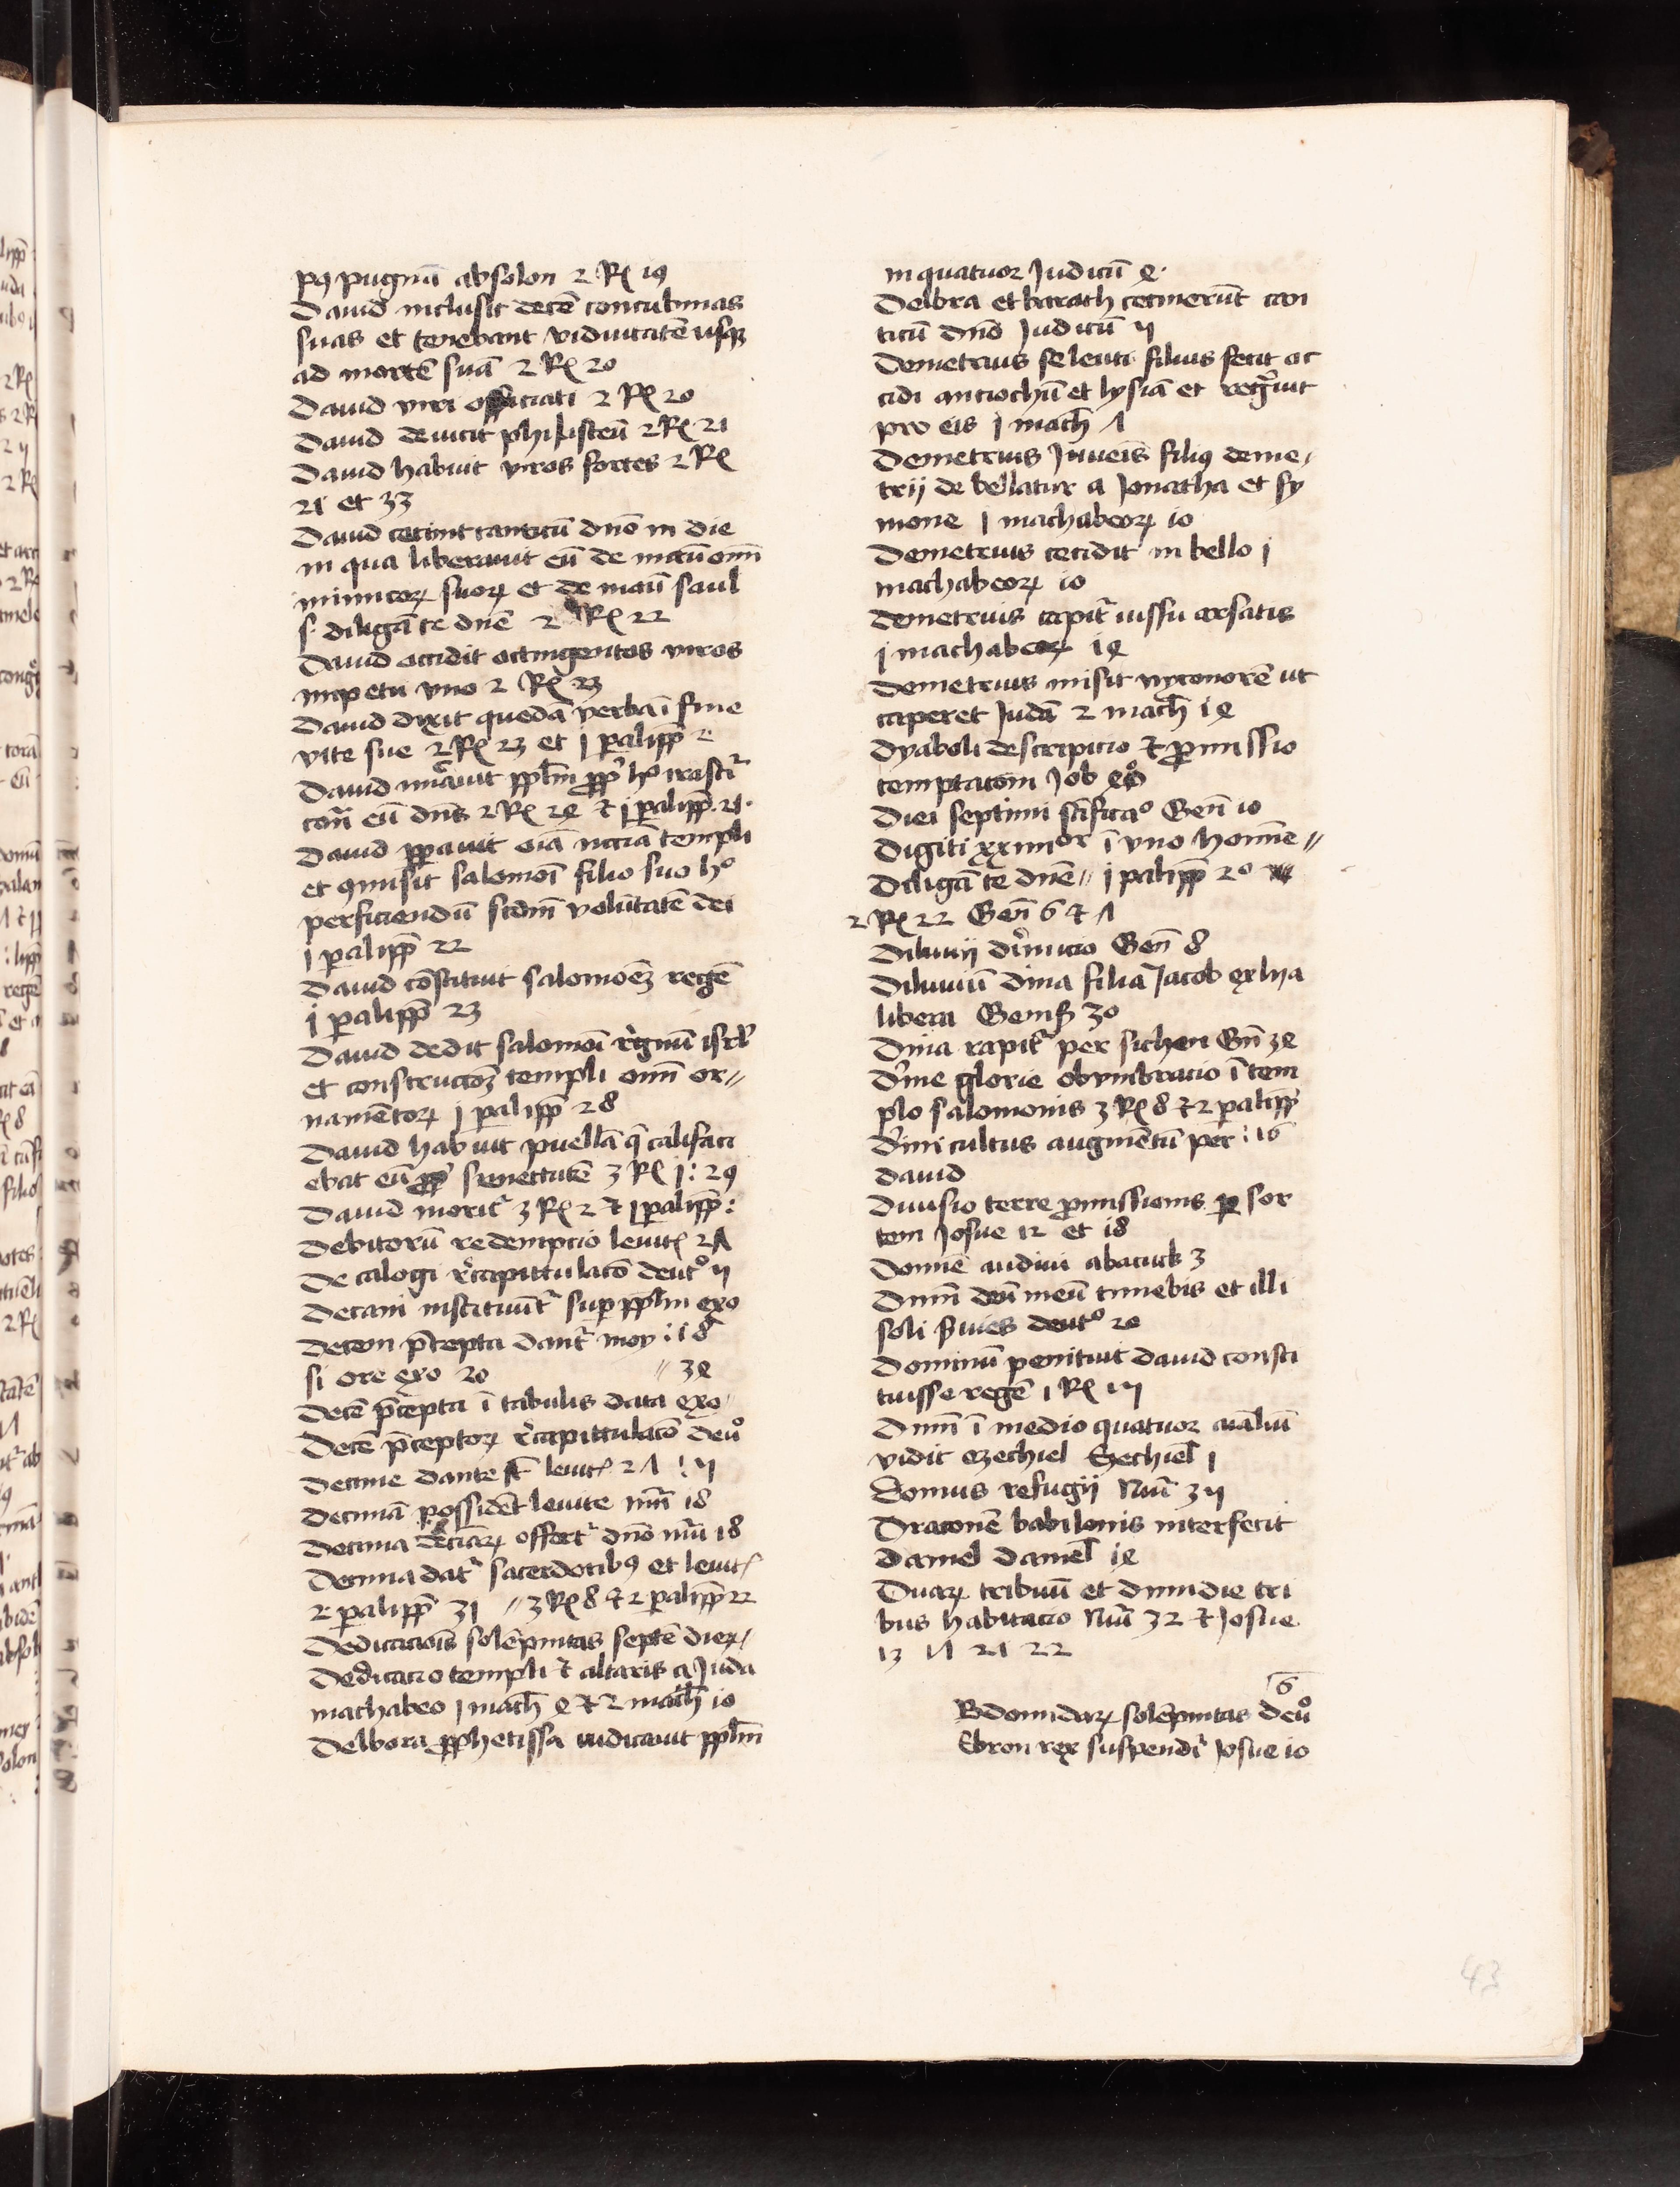 pꝯ pugnā absolon 2 Rꝭ 19
Dauid inclusit decē concubinas
suas et tenebant viduitatē usqꝫ
ad mortē suā 2 Rꝭ 20
Dauid viri officiati 2 Rꝭ 20
Dauid deuicit philisteū 2 Rꝭ 21
Dauid habuit viros fortes 2 Rꝭ
21 et 33
Dauid cecinit canticū dn̄o in die
in qua liberauit eū de manū om̄
inimicoꝝ suoꝝ et de manū saul
s. diligā te dn̄e 2 Rꝭ 22
Dauid occidit octingentos viros
impetu vno 2 Rꝭ 23
Dauid dixit quedā verba ī fine
vite sue 2 Rꝭ 23 et j paliꝑꝑ 2
Dauid nūauit ppl̄m ꝓꝑ hͦ irascit᷑
con̄ eū dn̄s 2 Rꝭ 24 ⁊ j paliꝑꝑ 21.
Dauid ꝑpauit oīa nccīa templi
et ꝯmisit salomoī filio suo hͦ
perficiendū scdm̄ volūtatē dei
j paliꝑꝑ 22
Dauid cōstituit salomoēꝫ regē
j paliꝑꝑ 23
Dauid dedit salomoī rignū isrl̓
et constructōꝫ templi om̄ or〃
namētoꝝ j paliꝑꝑ 28
Dauid habuit puellā q̄ califaci
ebat eū ꝓꝑ senettutē 3 Rꝭ j : 29
Dauid morit᷑ 3 Rꝭ 2 ⁊ j paliꝑꝑ :
Debitorū redempcio leuitꝭ 2Λ
De calogi rͥcapittulacō deutͦ 11
Decani instituūt᷑ sup ppl̄m exo
Decem p̄cepta dant᷑ moy : 18
si ore exo 20 〃 34
Decē p̄cepta ī tabulis data exo
Decē p̄ceptoꝝ rͥcapittulacō deuͦ
Decime dante leuitꝭ 2Λ : 11
Decimā possidēt leuite nūi 18
Decima deciāꝝ offert᷑ dn̄o nūi 18
Decima dat᷑ sacerdotibꝯ et leuitꝭ
2 paliꝑꝑ 31 〃 3 Rꝭ 8 ⁊ 2 paliꝑꝑ 22
Dedicacōis solēpnitas septē dieꝝ
Dedicacio templi ⁊ altaris a Juda
machabeo j mach̄ 4 ⁊ 2 mach̄ 10
Delbora ꝓphetissa iudicauit ppl̄m
in quatuor Judicū 4.
Delbra et barath cecinerūt can
ticū dn̄o Judicū 11
Demetrius seleuci filius fecit oc
cidi antiochū et lysiā et regͣuit
pro eis j mach̄ Λ
Demetrius Juueīs filiꝯ deme〃
trij debellatur a Jonatha et sy
mone j machabeoꝝ 10
Demetrius cecidit in bello j
machabeoꝝ 10
demetrius capit᷑ iussu arsatis
j machabeoꝝ 14
demetrius misit nyconorē ut
caperet Judā 2 mach̄ 14
Dyaboli descripicio ⁊ ꝓmissio
temptacōm Job 40
Diei septimi sc̄ificaͦ Gen̄ 10
Digiti xxiiiior ī vno homīe〃
Diligā te dn̄e〃 j paliꝑꝑ 20
2 Rꝭ 22 Gen̄ 6 ⁊ Λ
Diluuij diͥmicio Gen̄ 8
Diluuiū dina filia Jacob ex lya
libera Genß 30
Dina rapit᷑ per sichen Gn̄ 34
Dͥine glorie obymbracio ī tem
plo salomonis 3 Rꝭ 8 ⁊ 2 paliꝑꝑ
Dͥini cultus augmētū per : 16
dauid
Diuisio terre ꝓmissionis ꝑ sor
tem Josue 12 et 18
Domīe audiui abacuk 3
Dnm̄ deū meū timebis et illi
soli ßuies deutͦ 20
Dominū penituit dauid consti
tuisse regē 1 Rꝭ 111
Dnm̄ ī medio quatuor aīaliū
vidit ezechiel Ezechiel̄ j
Domus refugij Nūi 311
Draconē babilonis interfecit
Daniel Daniel̄ 14
Duaꝝ tribuū et dimidie tri
bus habitacio Nūi 32 ⁊ Josue
13 1Λ 21 22
6
Bdomidaꝝ solēpnitas deuͦ
Ebron rex suspendit᷑ Josue 10
43